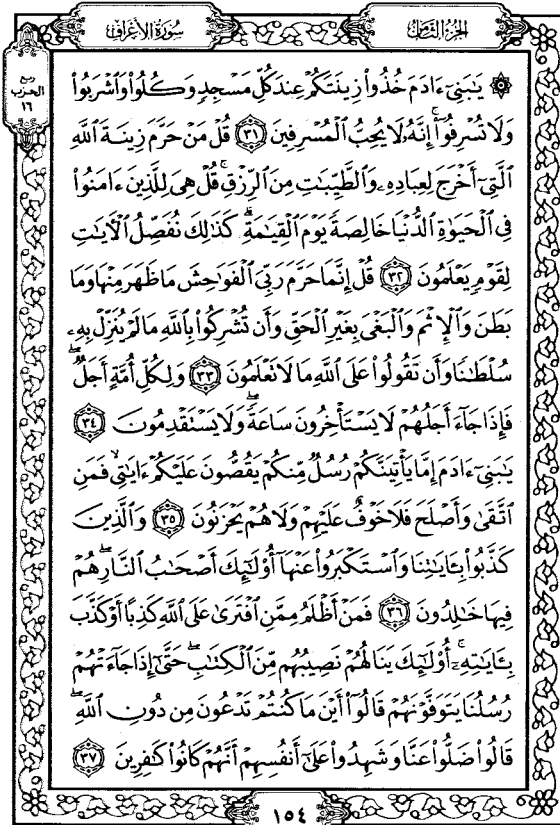 سُورَةُ الأَعْرَافِ
الجُزْءُ الثَّامِنُ
ربع
الحزب
١٦
۞ يَٰبَنِىٓ ءَادَمَ خُذُوا۟ زِينَتَكُمْ عِندَ كُلِّ مَسْجِدٍ وَكُلُوا۟ وَٱشْرَبُوا۟
وَلَا تُسْرِفُوٓا۟ إِنَّهُۥ لَا يُحِبُّ ٱلْمُسْرِفِينَ ٣١ قُلْ مَنْ حَرَّمَ زِينَةَ ٱللَّهِ
ٱلَّتِىٓ أَخْرَجَ لِعِبَادِهِۦ وَٱلطَّيِّبَٰتِ مِنَ ٱلرِّزْقِ ۚ قُلْ هِىَ لِلَّذِينَ ءَامَنُوا۟
فِى ٱلْحَيَوٰةِ ٱلدُّنْيَا خَالِصَةً يَوْمَ ٱلْقِيَٰمَةِ ۗ كَذَٰلِكَ نُفَصِّلُ ٱلْءَايَٰتِ
لِقَوْمٍ يَعْلَمُونَ ٣٢ قُلْ إِنَّمَا حَرَّمَ رَبِّىَ ٱلْفَوَٰحِشَ مَا ظَهَرَ مِنْهَا وَمَا
بَطَنَ وَٱلْإِثْمَ وَٱلْبَغْىَ بِغَيْرِ ٱلْحَقِّ وَأَن تُشْرِكُوا۟ بِٱللَّهِ مَا لَمْ يُنَزِّلْ بِهِۦ
سُلْطَٰنًا وَأَن تَقُولُوا۟ عَلَى ٱللَّهِ مَا لَا تَعْلَمُونَ ٣٣ وَلِكُلِّ أُمَّةٍ أَجَلٌ ۖ
فَإِذَا جَآءَ أَجَلُهُمْ لَا يَسْتَأْخِرُونَ سَاعَةً ۖ وَلَا يَسْتَقْدِمُونَ ٣٤
يَٰبَنِىٓ ءَادَمَ إِمَّا يَأْتِيَنَّكُمْ رُسُلٌ مِّنكُمْ يَقُصُّونَ عَلَيْكُمْ ءَايَٰتِى ۙ فَمَنِ
ٱتَّقَىٰ وَأَصْلَحَ فَلَا خَوْفٌ عَلَيْهِمْ وَلَا هُمْ يَحْزَنُونَ ٣٥ وَٱلَّذِينَ
كَذَّبُوا۟ بِـَٔايَٰتِنَا وَٱسْتَكْبَرُوا۟ عَنْهَآ أُو۟لَٰٓئِكَ أَصْحَٰبُ ٱلنَّارِ ۖ هُمْ
فِيهَا خَٰلِدُونَ ٣٦ فَمَنْ أَظْلَمُ مِمَّنِ ٱفْتَرَىٰ عَلَى ٱللَّهِ كَذِبًا أَوْ كَذَّبَ
بِـَٔايَٰتِهِۦٓ ۚ أُو۟لَٰٓئِكَ يَنَالُهُمْ نَصِيبُهُم مِّنَ ٱلْكِتَٰبِ ۖ حَتَّىٰٓ إِذَا جَآءَتْهُمْ
رُسُلُنَا يَتَوَفَّوْنَهُمْ قَالُوٓا۟ أَيْنَ مَا كُنتُمْ تَدْعُونَ مِن دُونِ ٱللَّهِ ۖ
قَالُوا۟ ضَلُّوا۟ عَنَّا وَشَهِدُوا۟ عَلَىٰٓ أَنفُسِهِمْ أَنَّهُمْ كَانُوا۟ كَٰفِرِينَ ٣٧
١٥٤